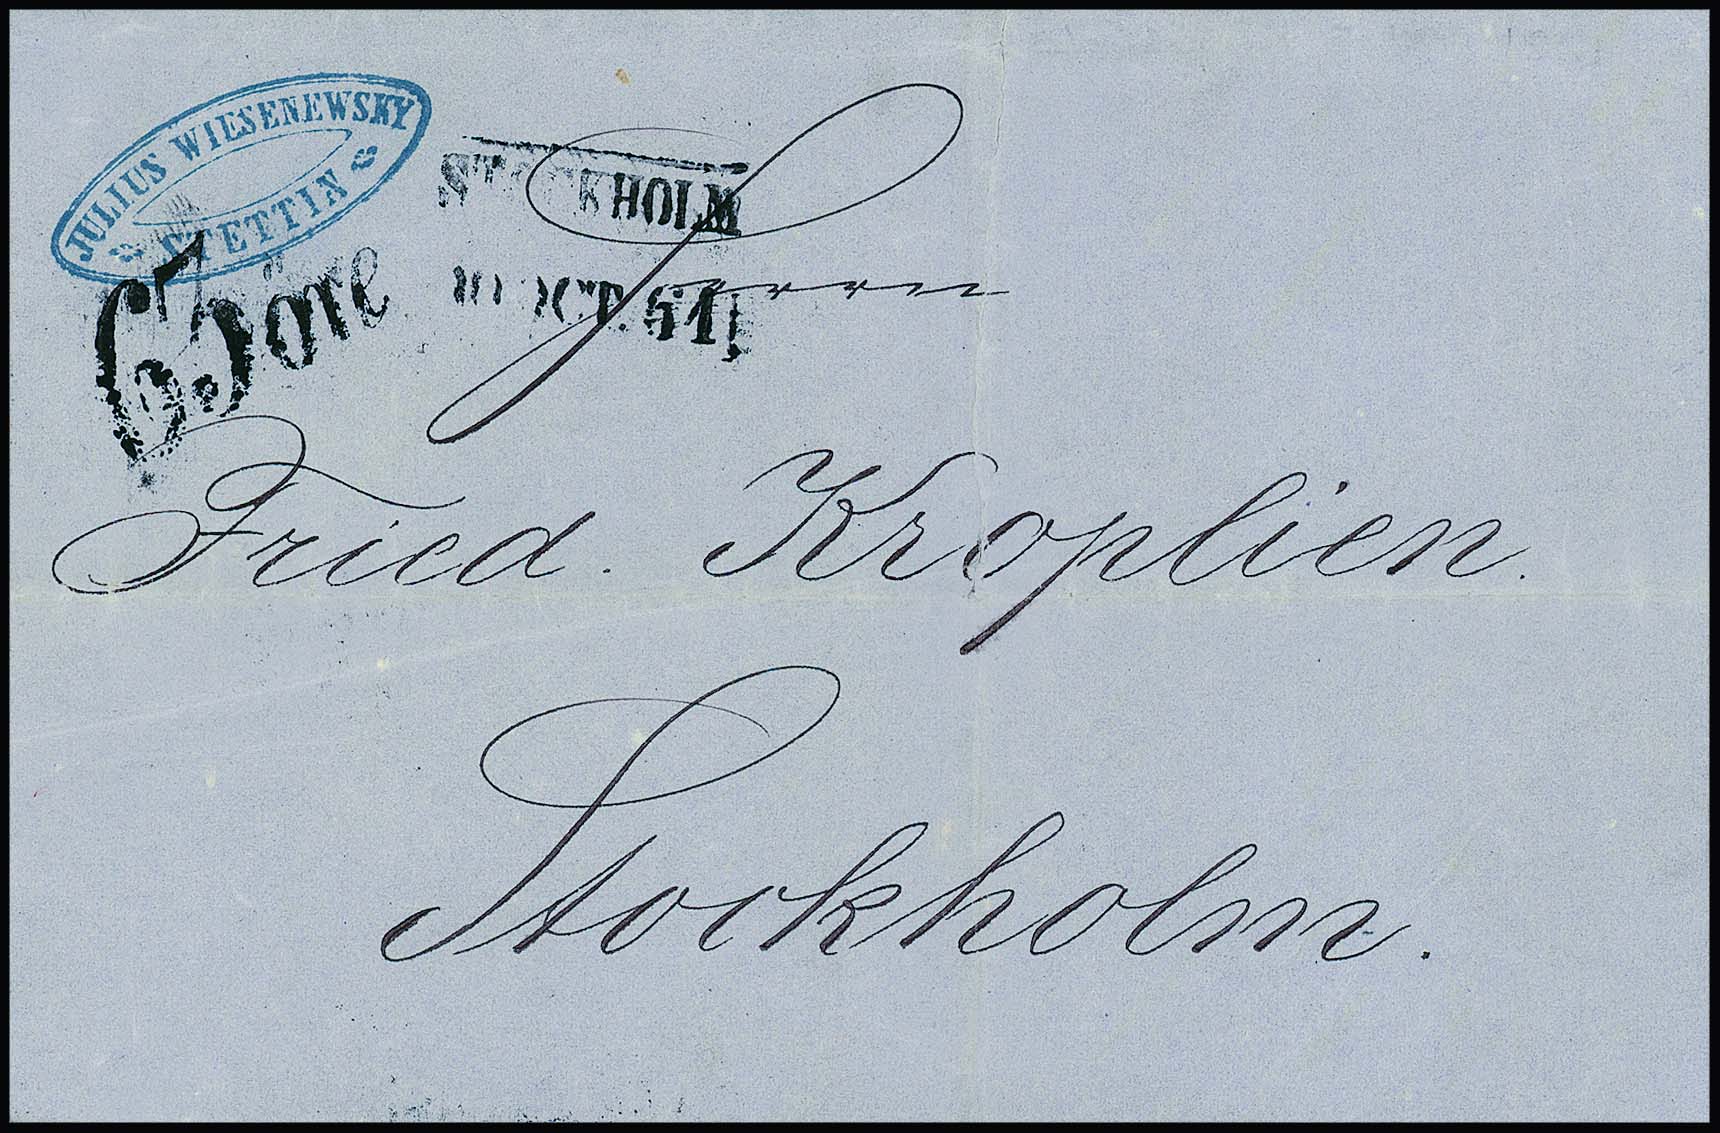 JULIUS WIESENEWSKY
STETTIN
STOCKHOLM
öre
Herrn
Fried. Kroplien.
Stockholm.